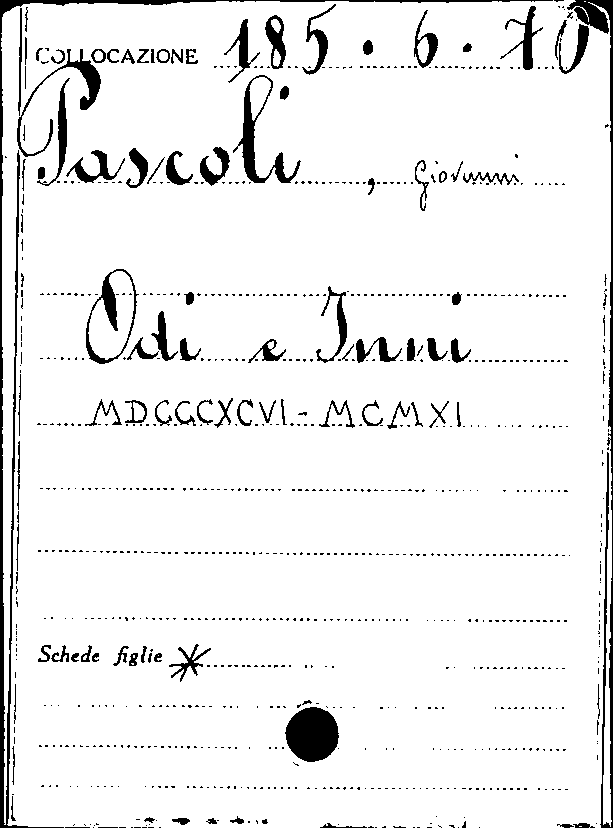 COLLOCAZIONE 185.6.70
Pascoli, Giovanni
Odi e Inni
MDCCCXCVI - MCMXI
Schede figlie *